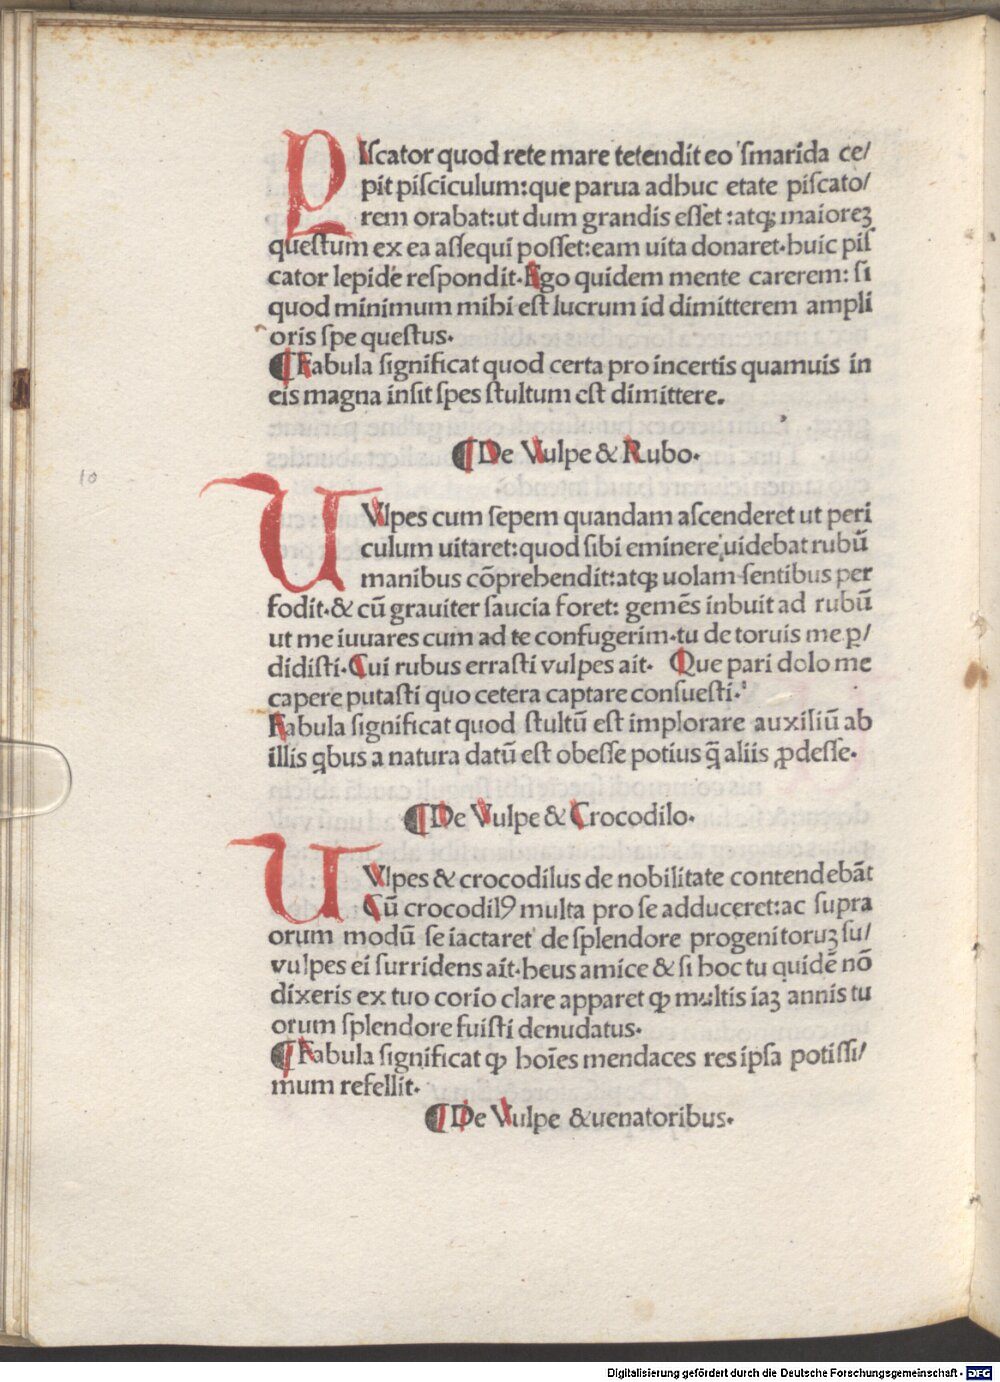 PIscator quod rete mare tetendit eo ſmarida ce/
pit piſciculum: que parua adhuc etate piſcato/
rem orabat: ut dum grandis eſſet: atqꝫ maioreꝫ
queſtum ex ea aſſequi poſſet: eam uita donaret. huic piſ
cator lepide reſpondit. Ego quidem mente carerem: ſi
quod minimum mihi eſt lucrum id dimitterem ampli
oris ſpe queſtus.
¶ Fabula ſignificat quod certa pro incertis quamuis in
eis magna inſit ſpes ſtultum eſt dimittere.
¶ De Vulpe & Rubo.
10
UVlpes cum ſepem quandam aſcenderet ut peri
culum uitaret: quod ſibi eminere uidebat rubū
manibus cōprehendit: atqꝫ uolam ſentibus per
fodit. & cū grauiter ſaucia foret: gemēs inhuit ad rubū
ut me iuuares cum ad te confugerim. tu de toruis me ꝑ/
didiſti. Cui rubus erraſti vulpes ait. Que pari dolo me
capere putaſti quo cetera captare conſueſti.
Fabula ſignificat quod ſtultū eſt implorare auxiliū ab
illis qbus a natura datū eſt obeſſe potius q̄ aliis ꝓdeſſe.
¶ De Vulpe & Crocodilo.
UVlpes & crocodilus de nobilitate contendebāt
Cū crocodilꝰ multa pro ſe adduceret: ac ſupra
orum modū ſe iactaret de ſplendore progenitoruꝫ ſu/
vulpes ei ſurridens ait. heus amice & ſi hoc tu quidē nō
dixeris ex tuo corio clare apparet ꝙ multis iaꝫ annis tu
orum ſplendore fuiſti denudatus.
¶ Fabula ſignificat ꝙ hoīes mendaces res ipſa potiſſi/
mum refellit.
¶ De Vulpe & uenatoribus.
Digitalisierung gefördert durch die Deutsche Forschungsgemeinschaft - DFG